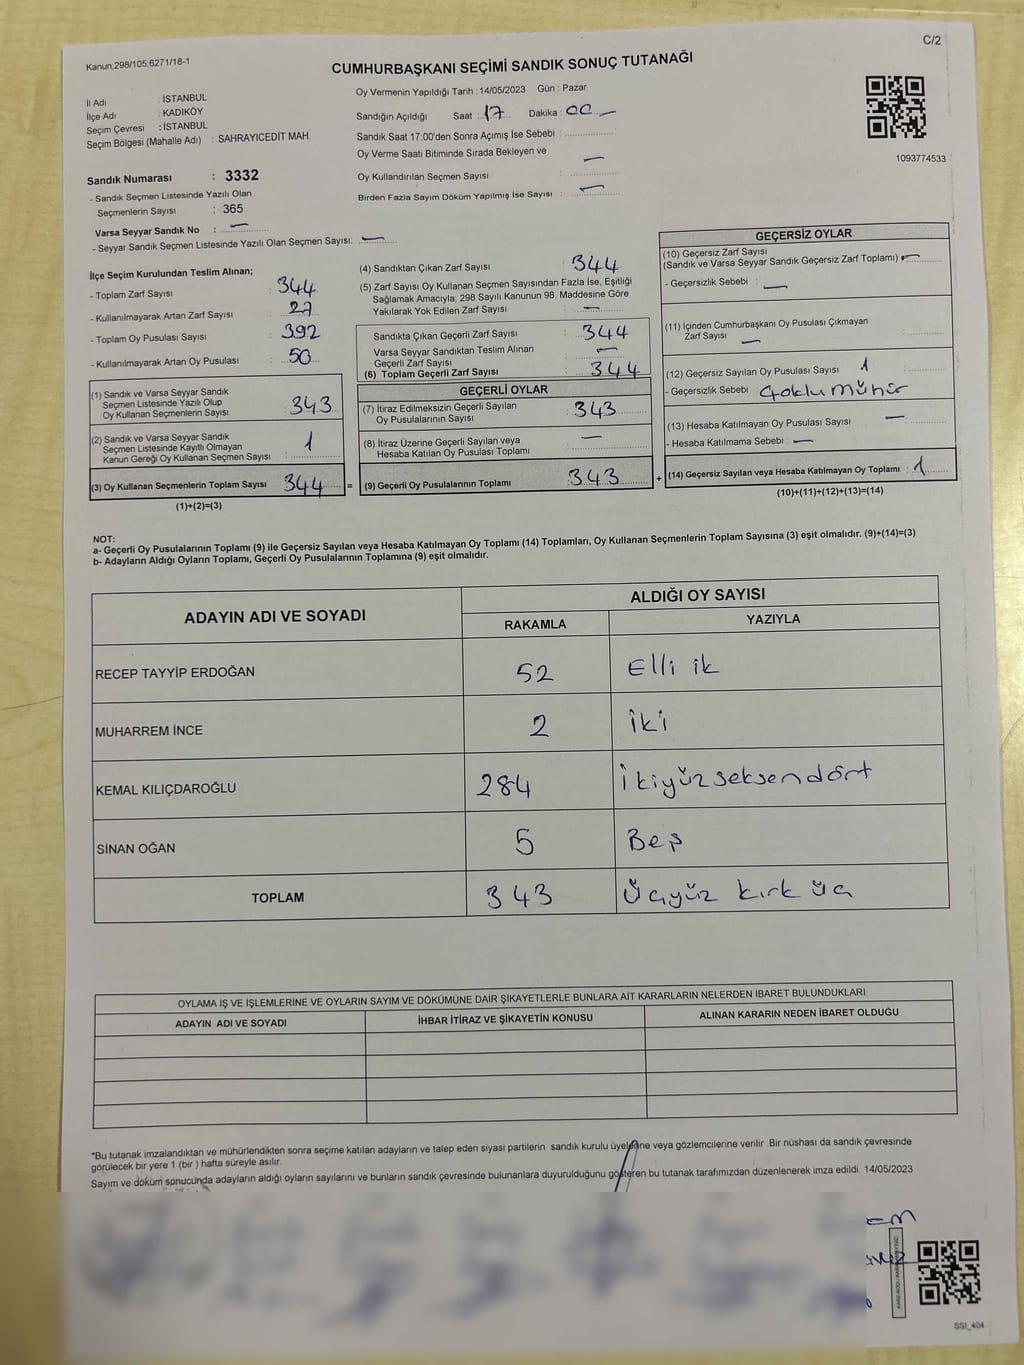 C/2
Kanun,298/105,6271/18-1
CUMHURBAŞKANI SEÇİMİ SANDIK SONUÇ TUTANAĞI
İl Adı : İSTANBUL
İlçe Adı : KADIKÖY
Seçim Çevresi : İSTANBUL
Seçim Bölgesi (Mahalle Adı) : SAHRAYICEDİT MAH.
Oy Vermenin Yapıldığı Tarih : 14/05/2023 Gün : Pazar
Sandığın Açıldığı Saat : 17 Dakika : 00 —
Sandık Saat 17:00'den Sonra Açımış İse Sebebi :
Oy Verme Saati Bitiminde Sırada Bekleyen ve
Oy Kullandırılan Seçmen Sayısı : —
Birden Fazla Sayım Döküm Yapılmış İse Sayısı : —
1093774533
Sandık Numarası : 3332
- Sandık Seçmen Listesinde Yazılı Olan
Seçmenlerin Sayısı : 365
Varsa Seyyar Sandık No : —
- Seyyar Sandık Seçmen Listesinde Yazılı Olan Seçmen Sayısı: —
İlçe Seçim Kurulundan Teslim Alınan;
- Toplam Zarf Sayısı : 344
- Kullanılmayarak Artan Zarf Sayısı : 27
- Toplam Oy Pusulası Sayısı : 392
- Kullanılmayarak Artan Oy Pusulası : 50
(1) Sandık ve Varsa Seyyar Sandık
Seçmen Listesinde Yazılı Olup
Oy Kullanan Seçmenlerin Sayısı : 343
(2) Sandık ve Varsa Seyyar Sandık
Seçmen Listesinde Kayıtlı Olmayan
Kanun Gereği Oy Kullanan Seçmen Sayısı : 1
(3) Oy Kullanan Seçmenlerin Toplam Sayısı : 344
(1)+(2)=(3)
(4) Sandıktan Çıkan Zarf Sayısı : 344
(5) Zarf Sayısı Oy Kullanan Seçmen Sayısından Fazla İse, Eşitliği
Sağlamak Amacıyla; 298 Sayılı Kanunun 98. Maddesine Göre
Yakılarak Yok Edilen Zarf Sayısı : —
Sandıkta Çıkan Geçerli Zarf Sayısı : 344
Varsa Seyyar Sandıktan Teslim Alınan
Geçerli Zarf Sayısı : —
(6) Toplam Geçerli Zarf Sayısı : 344
GEÇERLİ OYLAR
(7) İtiraz Edilmeksizin Geçerli Sayılan
Oy Pusulalarının Sayısı : 343
(8) İtiraz Üzerine Geçerli Sayılan veya
Hesaba Katılan Oy Pusulası Toplamı : —
= (9) Geçerli Oy Pusulalarının Toplamı : 343
GEÇERSİZ OYLAR
(10) Geçersiz Zarf Sayısı
(Sandık ve Varsa Seyyar Sandık Geçersiz Zarf Toplamı) : —
- Geçersizlik Sebebi : —
(11) İçinden Cumhurbaşkanı Oy Pusulası Çıkmayan
Zarf Sayısı —
(12) Geçersiz Sayılan Oy Pusulası Sayısı : 1
- Geçersizlik Sebebi : Çoklu Mühür
(13) Hesaba Katılmayan Oy Pusulası Sayısı : —
- Hesaba Katılmama Sebebi : —
+ (14) Geçersiz Sayılan veya Hesaba Katılmayan Oy Toplamı : 1
(10)+(11)+(12)+(13)=(14)
NOT:
a- Geçerli Oy Pusulalarının Toplamı (9) ile Geçersiz Sayılan veya Hesaba Katılmayan Oy Toplamı (14) Toplamları, Oy Kullanan Seçmenlerin Toplam Sayısına (3) eşit olmalıdır. (9)+(14)=(3)
b- Adayların Aldığı Oyların Toplamı, Geçerli Oy Pusulalarının Toplamına (9) eşit olmalıdır.
ADAYIN ADI VE SOYADI
ALDIĞI OY SAYISI
RAKAMLA YAZIYLA
RECEP TAYYİP ERDOĞAN 52 Elli ik
MUHARREM İNCE 2 iki
KEMAL KILIÇDAROĞLU 284 İkiyüz seksen dört
SİNAN OĞAN 5 Beş
TOPLAM 343 Üçyüz kırk üç
OYLAMA İŞ VE İŞLEMLERİNE VE OYLARIN SAYIM VE DÖKÜMÜNE DAİR ŞİKAYETLERLE BUNLARA AİT KARARLARIN NELERDEN İBARET BULUNDUKLARI
ADAYIN ADI VE SOYADI İHBAR İTİRAZ VE ŞİKAYETİN KONUSU ALINAN KARARIN NEDEN İBARET OLDUĞU
*Bu tutanak imzalandıktan ve mühürlendikten sonra seçime katılan adayların ve talep eden siyasi partilerin sandık kurulu üyelerine veya gözlemcilerine verilir. Bir nüshası da sandık çevresinde
görülecek bir yere 1 (bir ) hafta süreyle asılır.
Sayım ve döküm sonucunda adayların aldığı oyların sayılarını ve bunların sandık çevresinde bulunanlara duyurulduğunu gösteren bu tutanak tarafımızdan düzenlenerek imza edildi. 14/05/2023
SSI_404